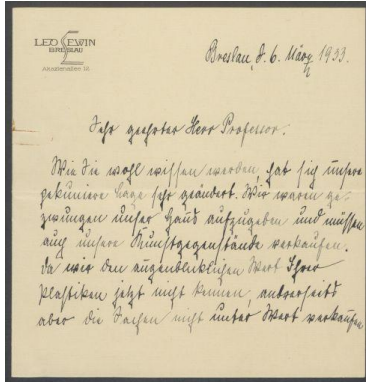 LEO LEWIN
BRESLAU
Breslau, d. 6. März 1933.
Sehr geehrter Herr Professor.
Wie Sie wohl wissen werden, hat sich unsere
pekuniere Lage sehr geändert. Wir waren ge-
zwungen unser Haus aufzugeben und müssen
auch unsere Kunstgegenstände verkaufen.
Da wir den augenblicklichen Wert Ihrer
Plastiken jetzt nicht kennen, andrerseits
aber die Sachen nicht unter Wert verkaufen